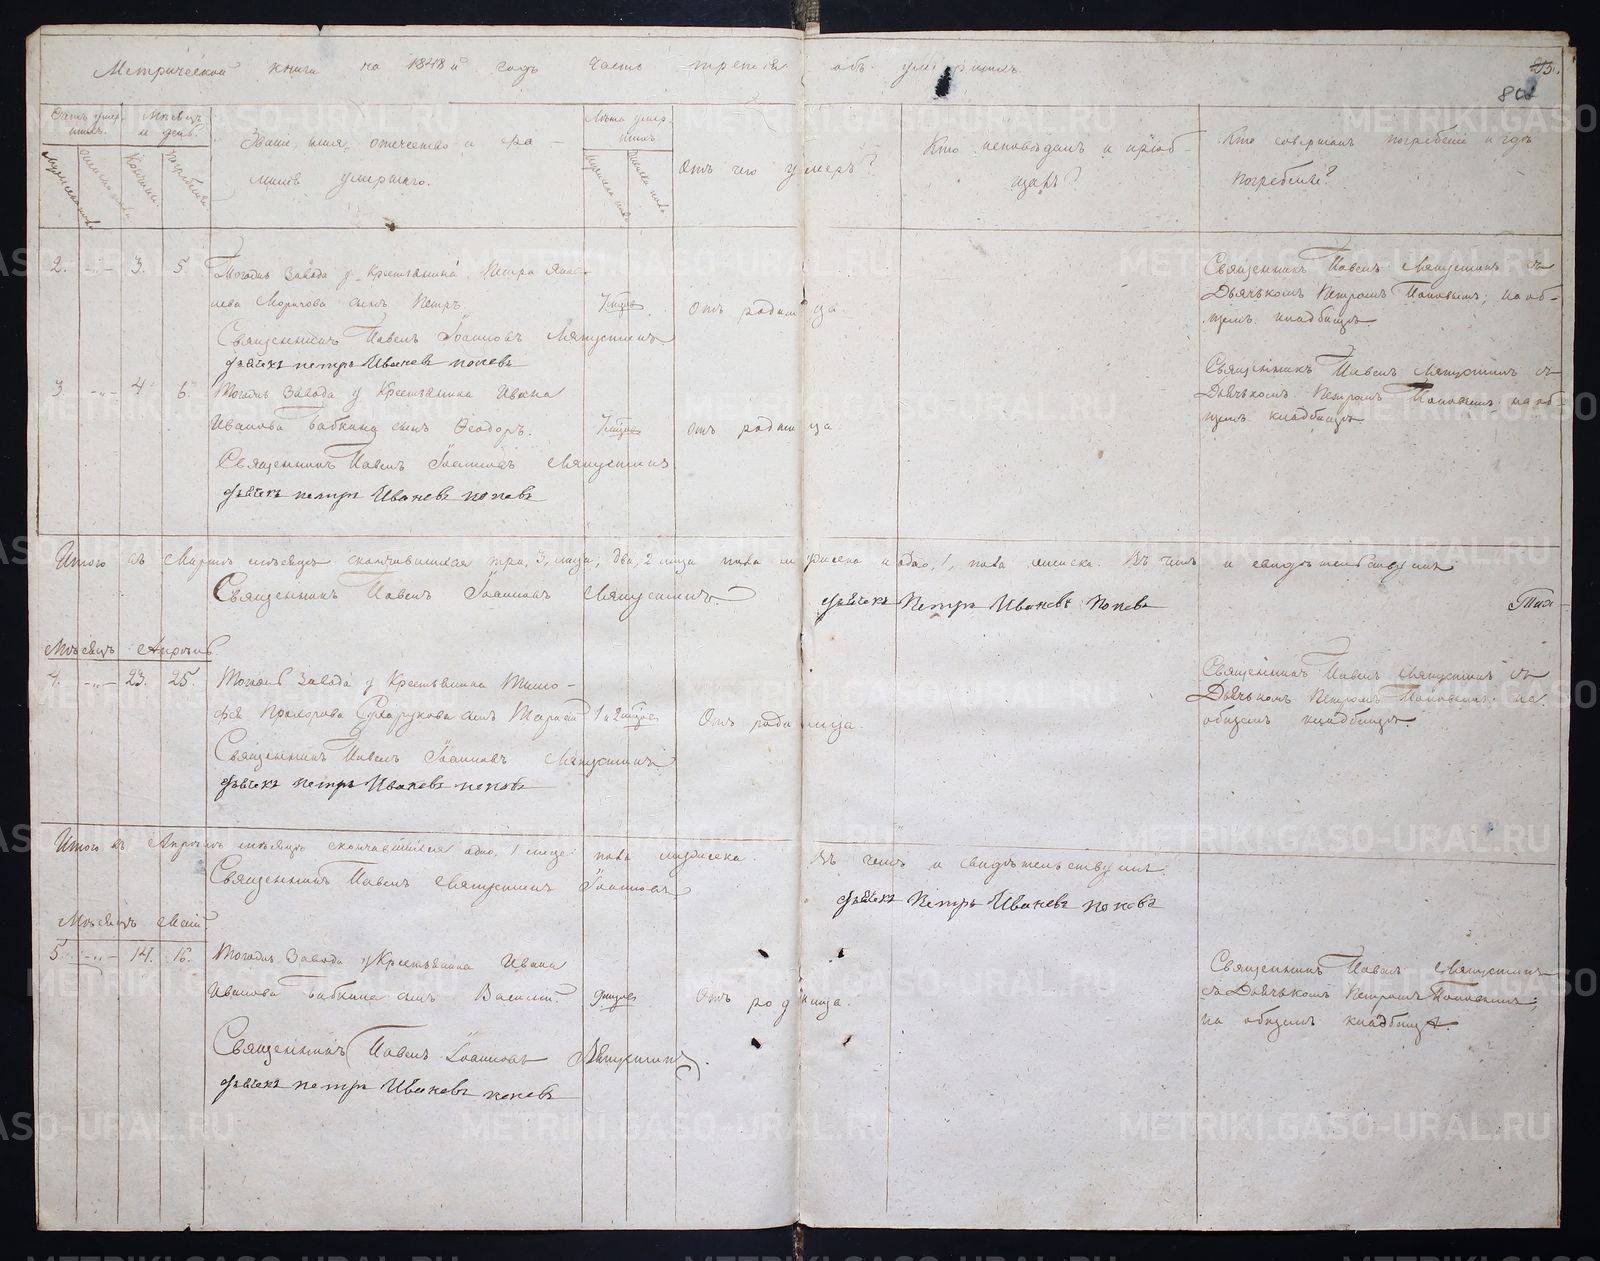 Метрической книги на 1848й годъ часть третія объ умершихъ.
802
Счетъ умершихъ.
Мѣсяцъ и день.
Званіе, имя, отечество и фа-
милія умершаго.
Лѣта умер-
шихъ
Отъ чего умеръ?
Кто исповѣдалъ и пріоб-
щалъ?
Кто совершалъ погребеніе и гдѣ
погребены?
мужеска пола
женска пола
Кончины.
погребенія
мужеска пола
женска пола
2. -„- 3. 5. завода у Крестьянина Петра
сынъ Петръ. 7 Отъ родимца.
Священникъ Павелъ Іоанновъ Ляпустинъ
дьячекъ петръ Ивановъ поповъ
Священникъ Павелъ Ляпустинъ съ
Дьячькомъ Петромъ Поповымъ; на об-
щемъ кладбищѣ.
3 -„- 4 6. завода у Крестьянина Ивана
Иванова Бабкина сынъ Ѳеодоръ. 7 отъ родимца
Священникъ Павелъ Іоанновъ Ляпустинъ
дьячекъ петръ Ивановъ поповъ
Священникъ Павелъ Ляпустинъ съ
Дьячькомъ Петромъ Поповымъ на об-
щемъ кладбищѣ
Итого въ Мартѣ мѣсяцѣ скончавшихся три, 3, лица; два, 2 лица пола мужеска и одно, 1, пола женска. Въ чемъ и свидѣтельствуемъ
Священникъ Павелъ Іоанновъ Ляпустинъ.
дьячекъ Петръ Ивановъ Поповъ
Мѣсяцъ Апрѣль.
4. -„- 23. 25. завода у Крестьянина Тимо-
фея Прохорова Сухарукова сынъ 1 и 2 Отъ родимца.
Священникъ Павелъ Іоанновъ Ляпустинъ
дьячекъ петръ Ивановъ поповъ
Священникъ Павелъ Ляпустинъ съ
Дьячькомъ Петромъ Поповымъ; на
общемъ кладбищѣ.
Итого въ Апрѣлѣ мѣсяцѣ скончавшихся одно, 1 лице пола мужеска. Въ чемъ и свидѣтельствуемъ.
Священникъ Павелъ Ляпустинъ Іоанновъ
дьячекъ Петръ Ивановъ поповъ
Мѣсяцъ Маій
5. -„- 14. 16. завода у Крестьянина Ивана
Иванова Бабкина сынъ Василій. Отъ родимца.
Священникъ Павелъ Іоанновъ Ляпустинъ
дьячекъ петръ Ивановъ поповъ
Священникъ Павелъ Ляпустинъ
съ Дьячькомъ Петромъ Поповымъ;
на общемъ кладбищѣ
METRIKI.GASO-URAL.RU